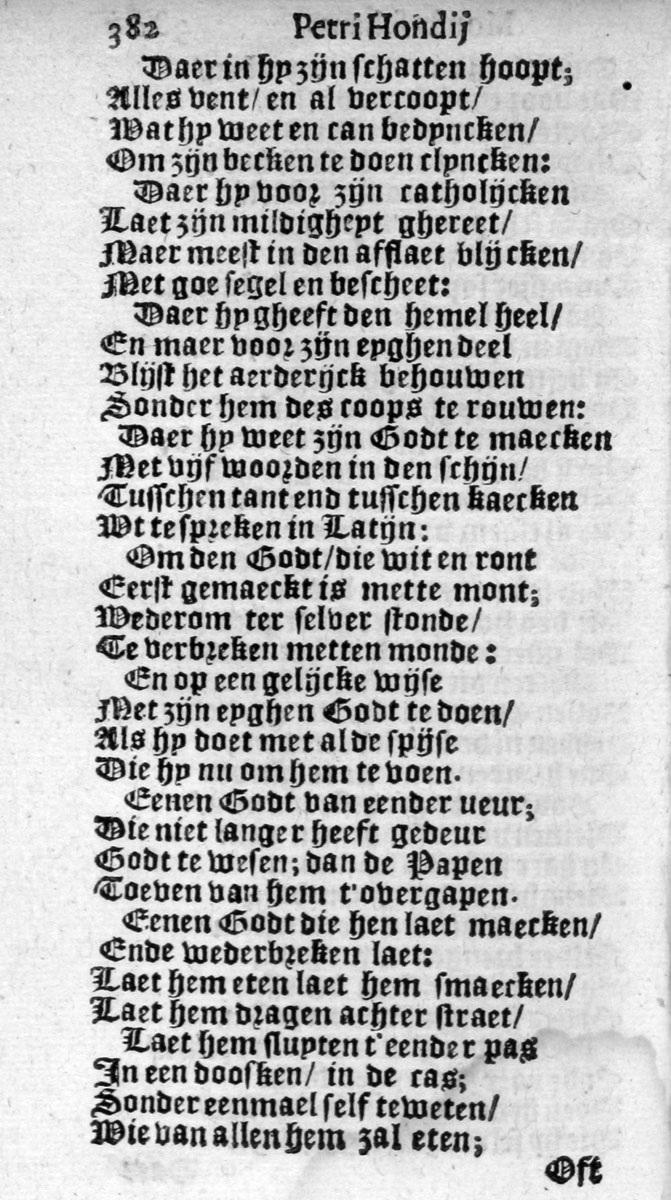 382 Petri Hondij
Daer in hy zijn schatten hoopt;
Alles vent/ en al vercoopt/
Wat hy weet en can bedyncken/
Om zijn becken te doen clyncken:
Daer hy voor zijn catholijcken
Laet zijn mildigheyt ghereet/
Maer meest in den afflaet blijcken/
Met goe segel en bescheet:
Daer hy gheeft den hemel heel/
En maer voor zijn eyghen deel
Blijst het aerderijck behouwen
Sonder hem des coops te rouwen:
Daer hy weet zijn Godt te maecken
Met vijf woorden in den schijn/
Tusschen tant end tusschen kaecken
Wt te spreken in Latijn:
Om den Godt/ die wit en ront
Eerst gemaeckt is mette mont;
Wederom ter selver stonde/
Te verbreken metten monde:
En op een gelijcke wijse
Met zijn eyghen Godt te doen/
Als hy doet met al de spijse
Die hy nu om hem te voen.
Eenen Godt van eender ueur;
Die niet langer heeft gedeur
Godt te wesen; dan de Papen
Toeven van hem t'overgapen.
Eenen Godt die hen laet maecken/
Ende wederbreken laet:
Laet hem eten laet hem smaecken/
Laet hem dragen achter straet/
Laet hem sluyten t'eender pas
In een doosken/ in de cas;
Sonder eenmael self te weten/
Wie van allen hem zal eten;
Oft